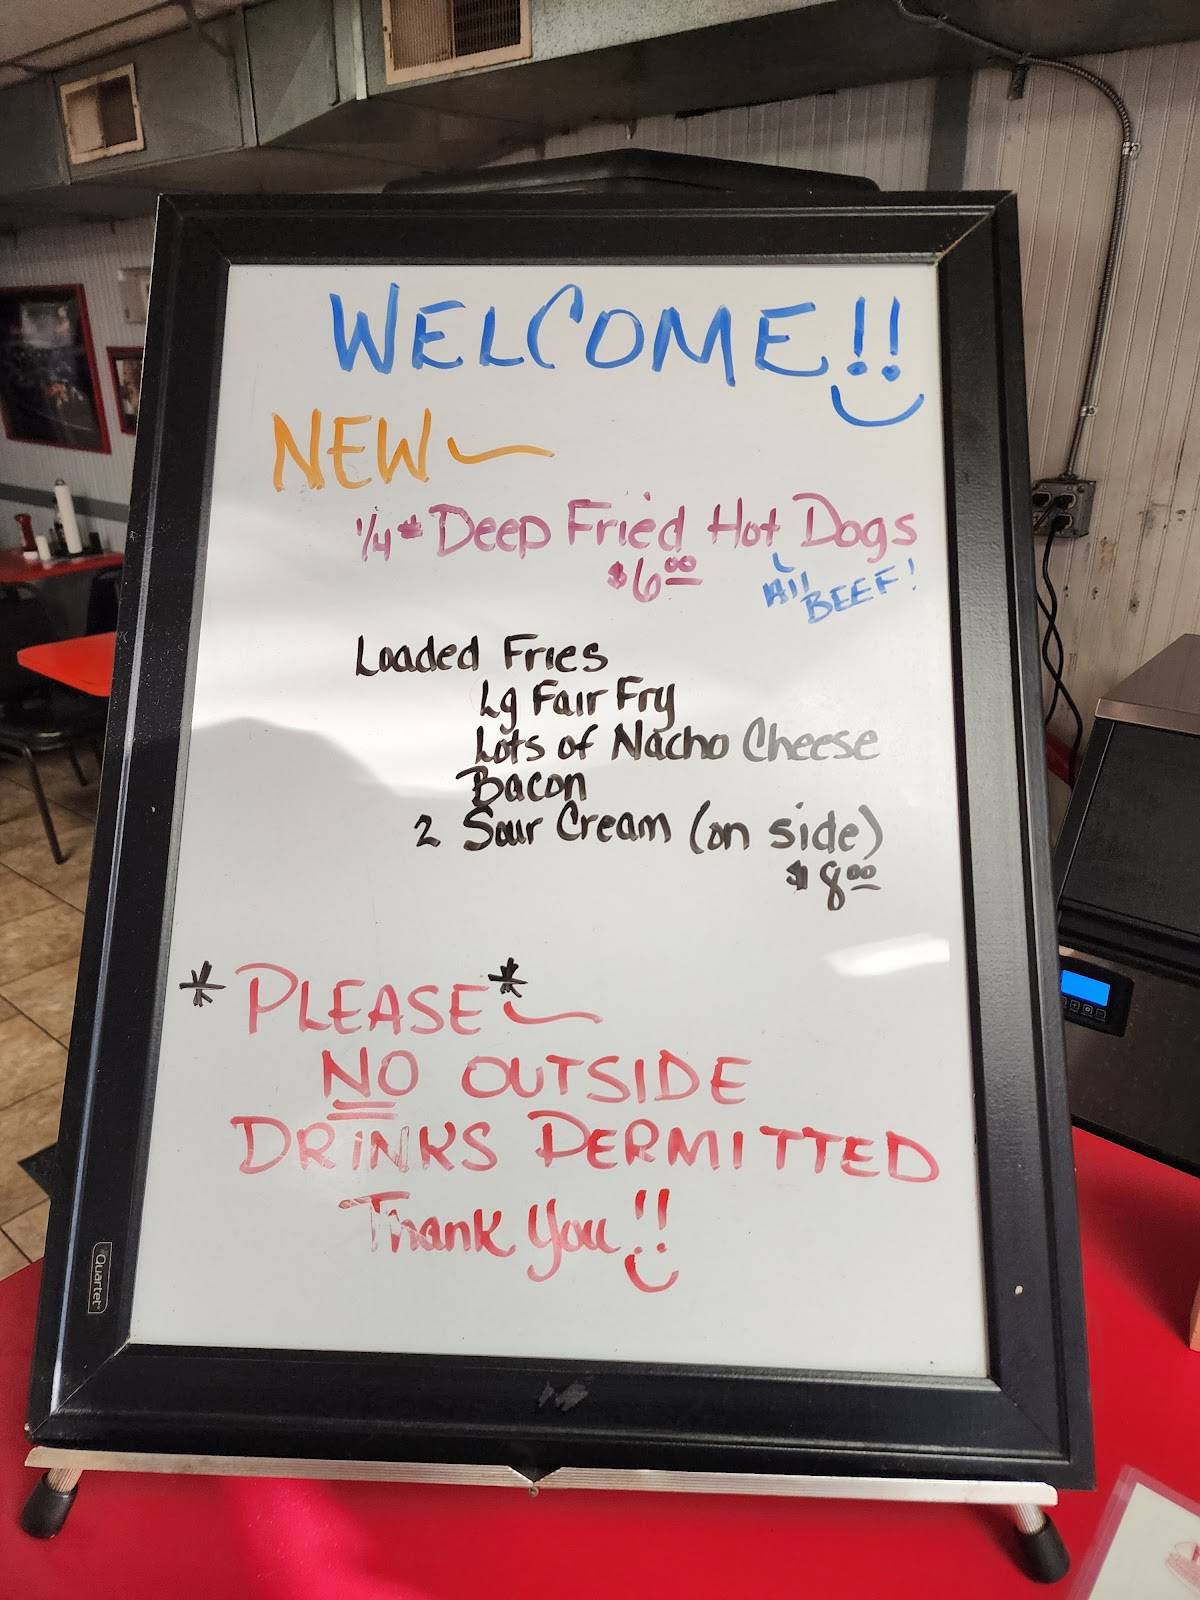 WELCOME!!
NEW~
1/4# Deep Fried Hot Dogs
$6.00
All
BEEF!
Loaded Fries
Lg Fair Fry
Lots of Nacho Cheese
Bacon
2 Sour Cream (on side)
$8.00
*PLEASE*~
NO OUTSIDE
DRiNKS PERMITTED
Thank You!!
Quartet